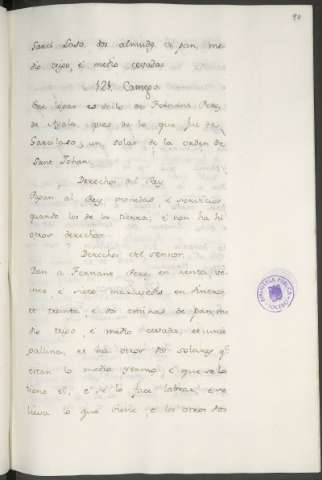 90
Garci Laso, dos almudes de pan, me
dio trigo, e medio cevada.
121. Campo
Este logar es solo de Fernant Perez,
de Ayala, que es de lo que fue de
Garcilaso, un solar de la orden de
Sant Johan.
Derechos del Rey
Pagan al Rey monedas e servicios
quando los de la tierra; e non ha hi
otros derechos.
Derechos del señor.
Dan a Fernant Perez, en renta ve
inte e siete maravedis en dineros
et treinta e dos eminas de pan, me
dio trigo, e medio cevada, et una
gallina, et ha otros dos solares q.
estan lo medio yermo, e que se lo
tiene el, e se lo face labrar, e se
lieva lo que tiene, e los otros dos
BIBLIOTECA PUBLICA
TOLEDO